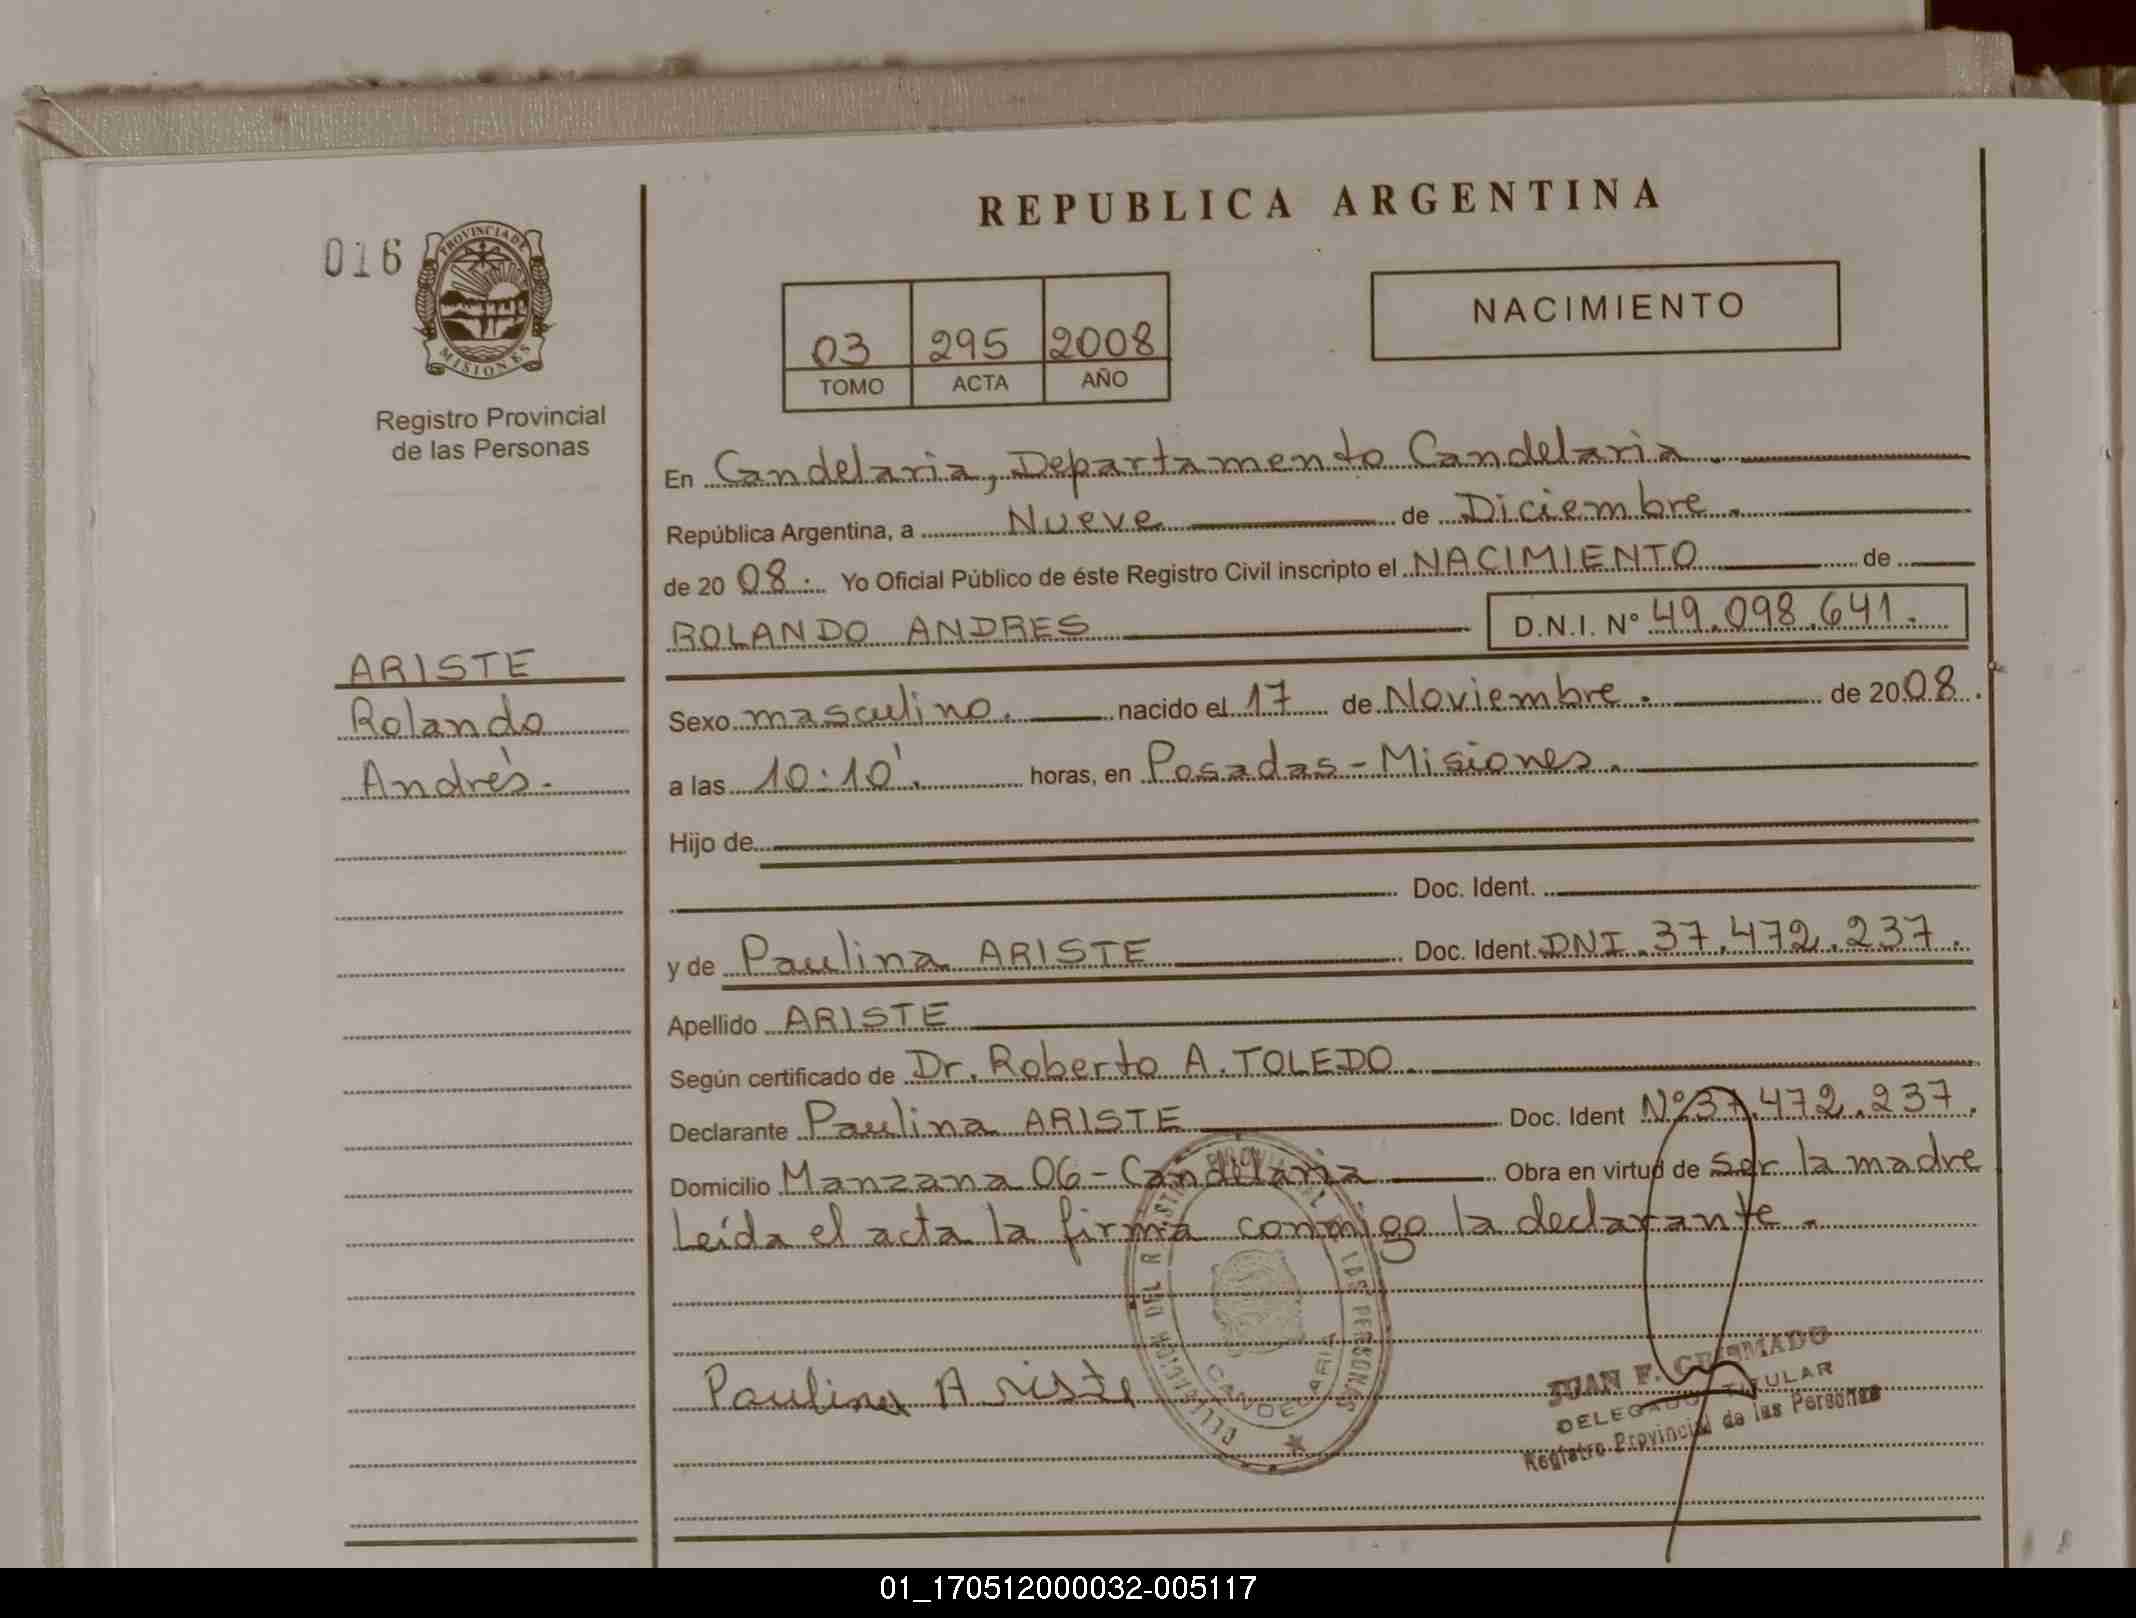 REPUBLICA ARGENTINA
016
PROVINCIA DE
MISIONES
Registro Provincial
de las Personas
03 295 2008
TOMO ACTA AÑO
NACIMIENTO
En Candelaria, Departamento Candelaria.
República Argentina, a Nueve de Diciembre.
de 20 08. Yo Oficial Público de éste Registro Civil inscripto el NACIMIENTO de
ROLANDO ANDRES D.N.I. Nº 49.098.641.
ARISTE
Rolando
Andrés.
Sexo masculino. nacido el 17 de Noviembre. de 2008.
a las 10:10'. horas, en Posadas-Misiones.
Hijo de
Doc. Ident.
y de Paulina ARISTE Doc. Ident. DNI. 37.472.237.
Apellido ARISTE
Según certificado de Dr. Roberto A. TOLEDO.
Declarante Paulina ARISTE Doc. Ident Nº 37.472.237.
Domicilio Manzana 06-Candelaria Obra en virtud de ser la madre
Leída el acta la firma conmigo la declarante.
Paulina Ariste
DELEGACION DEL REGISTRO PROVINCIAL DE LAS PERSONAS
CANDELARIA
JUAN F.
DELEGADO TITULAR
Registro Provincial de las Personas
01_170512000032-005117